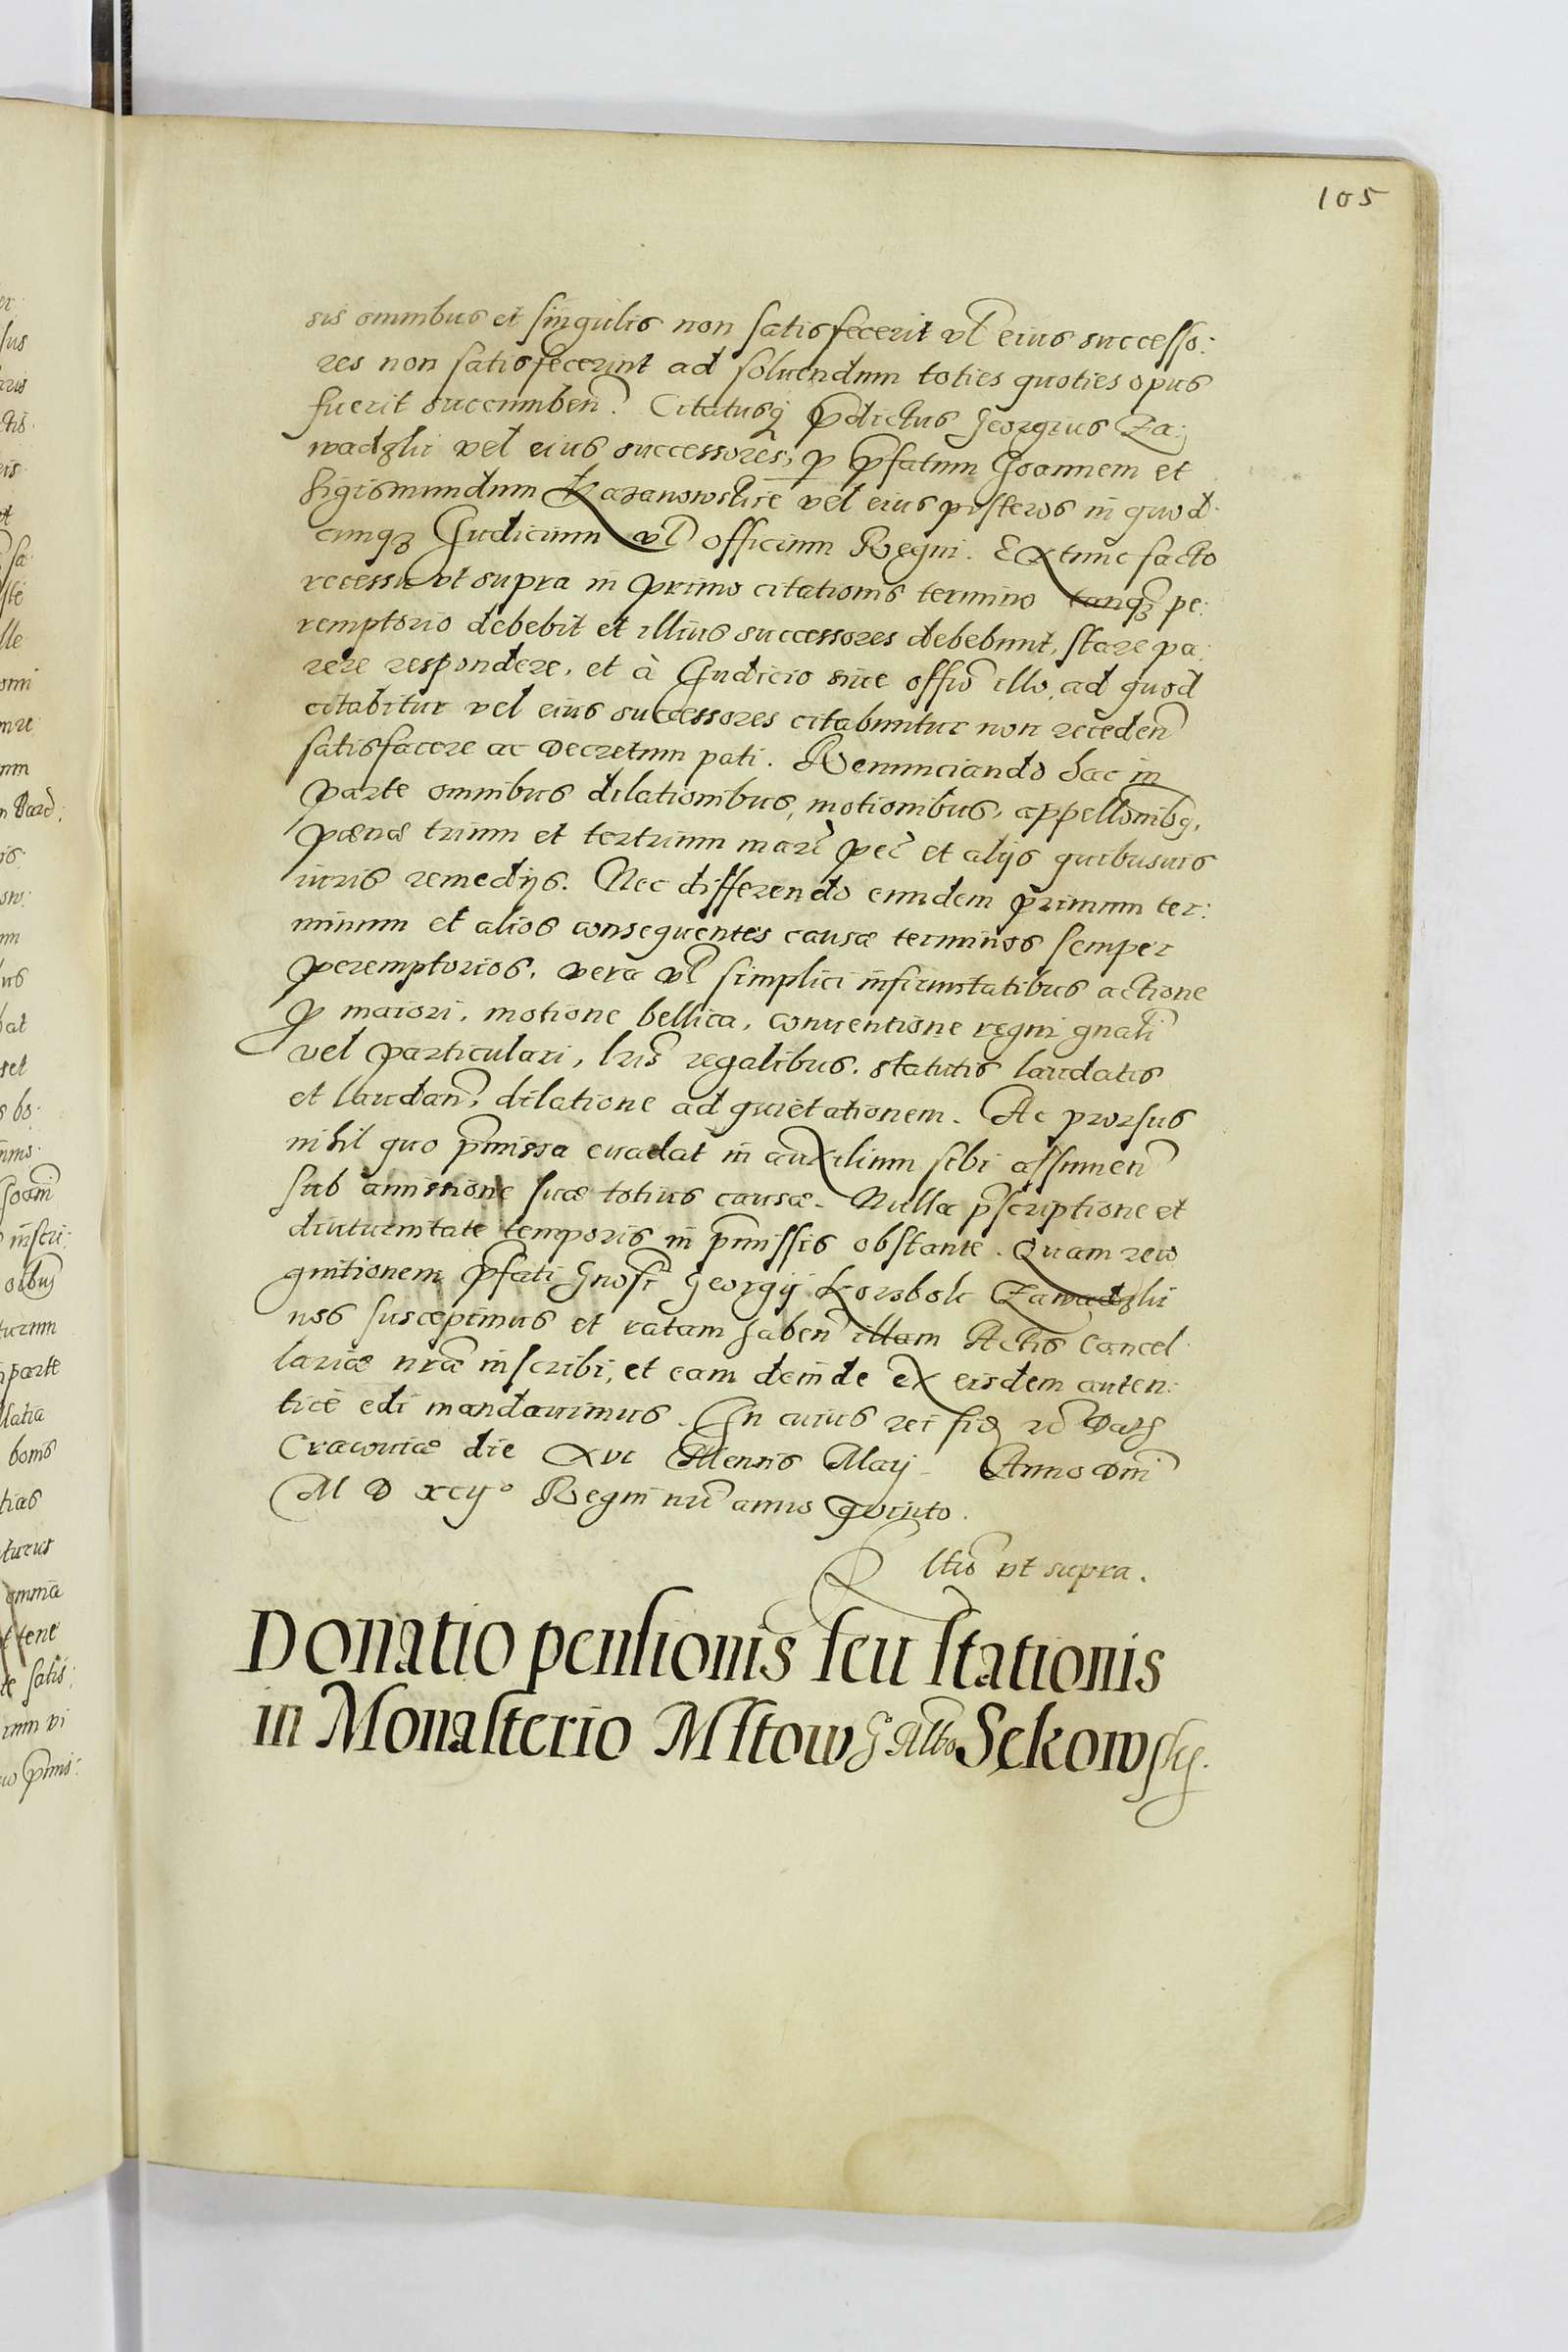 105
sis omnibus et singulis non satisfecerit vl eius successo:
res non satisfecerint ad soluendum toties quoties opus
fuerit succumben. Citatusq pdictus Georgius Za:
wadzki vel eius successores, p pfatum Joannem et
Sigismundum Kazanowskie vel eius posteros in quod
cunqz Judicium vl officium Regni. Extunc facto
recessu vt supra in primo citationis termino tanqz pe:
remptorio debebit et illius successores debebunt, stare pa:
rere respondere, et à Judicio siue offio illo, ad quod
citabitur vel eius successores citabuntur non receden
satisfacere ac Decretum pati. Renunciando hac in
parte omnibus dilationibus, motionibus, appellonibq,
pœnæ trium et tertrium mar pec et alijs quibusuis
iuris remedijs. Nec differendo eundem primum ter:
minum et alios consequentes causæ terminos semper
peremptorios, vera vl simplici infirmitatibus actione
p maiori, motione bellica, conuentione regni gnali
vel particulari, lris regalibus, statutis laudatis
et laudan, dilatione ad quietationem. Ac prorsus
nihil quo pmissa euadat in auxilium sibi assumen
sub amissione suæ totius causæ. Nulla pscriptione et
diuturnitate temporis in pmissis obstante. Quam reco
gnitionem pfati Gnosi Georgij Korsbok Zawadzki
nos suscepimus et ratam haben illam Actis Cancel
lariæ nræ inscribi, et eam deinde ex eisdem auten:
ticè edi mandauimus. In cuius rei fid Datz
Cracouiæ die xvi Mensis Maij Anno Dni
M D xcijo Regni nri anno quinto.
Rltio vt supra.
Donatio pensionis seu stationis
in Monasterio Mstow Go Albo Sekowskj.